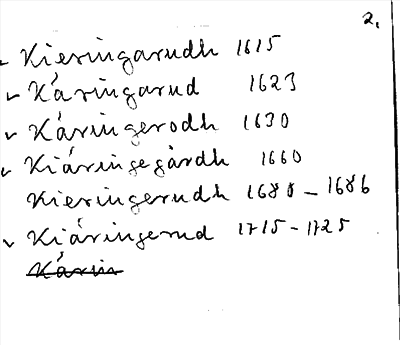 2.
✓ Kieringarudh 1615
✓ Käringarud 1623
✓ Käringerodh 1630
✓ Kiäringegårdh 1660
Kieringerudh 1680 – 1686
✓ Kiäringerud 1715 – 1725
Kärin